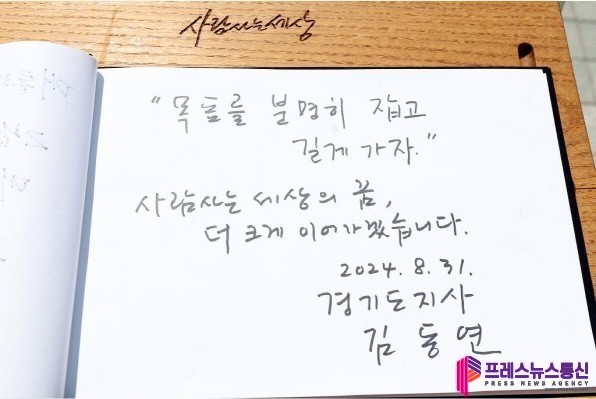 사람사는세상
"목표를 분명히 잡고
길게 가자."
사람사는 세상의 꿈,
더 크게 이어가겠습니다.
2024. 8. 31.
경기도지사
김 동 연
프레스뉴스통신
PRESS NEWS AGENCY